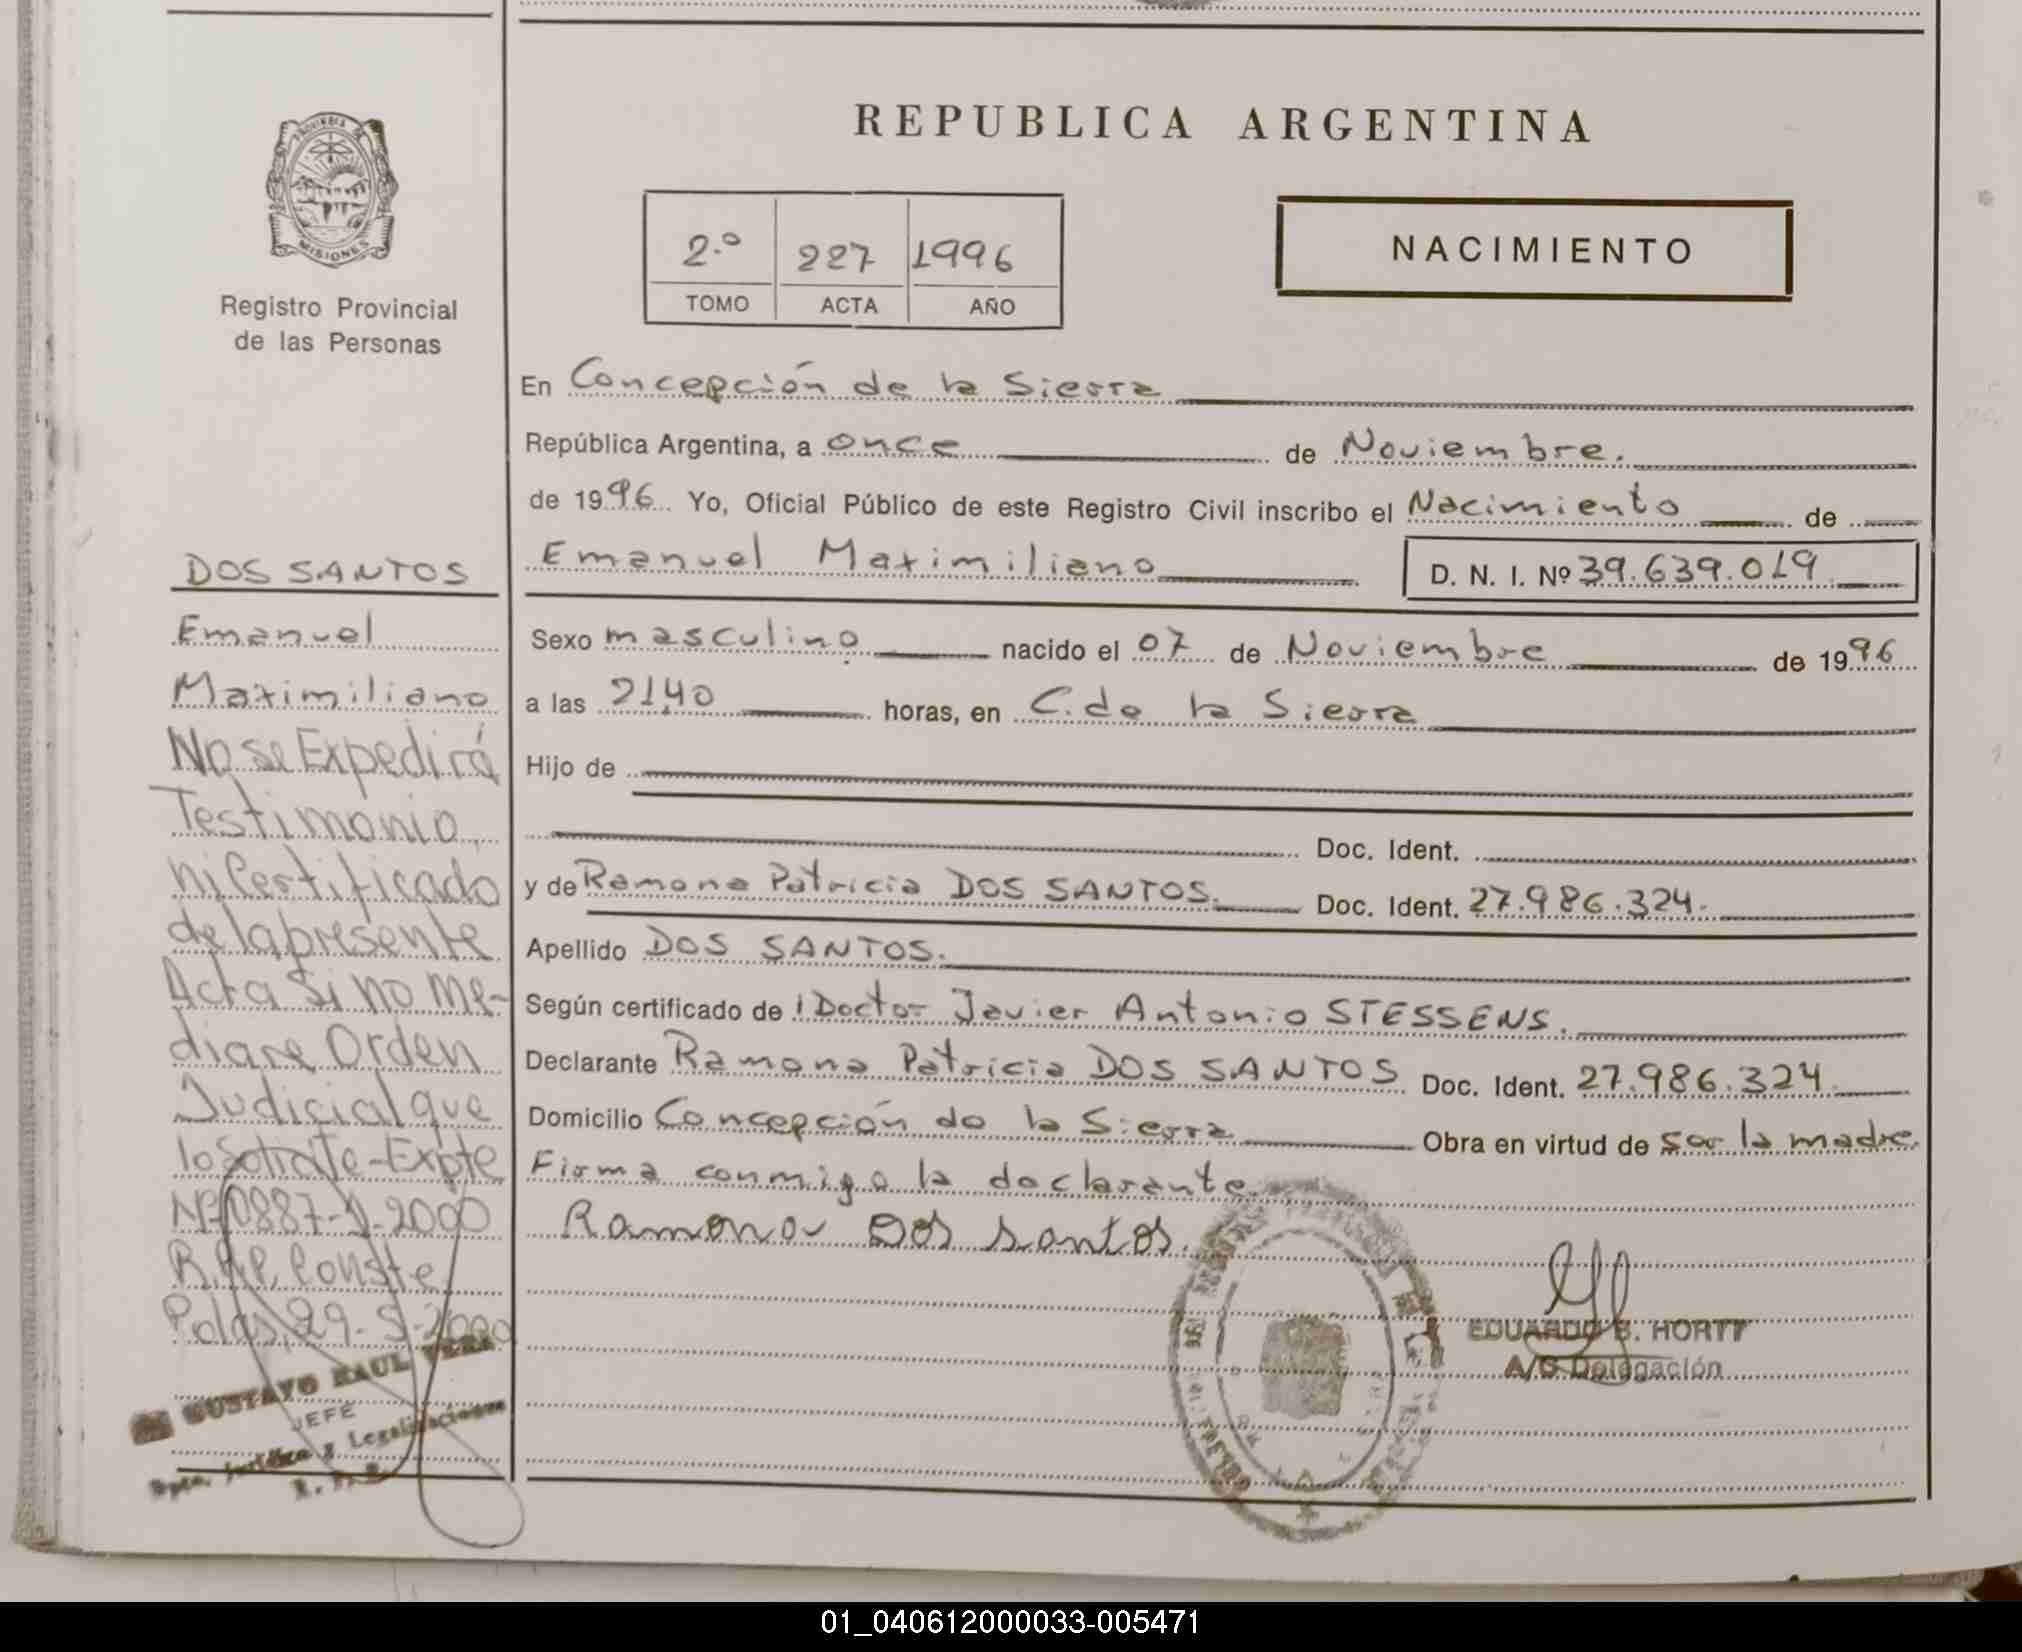 PROVINCIA DE
MISIONES
Registro Provincial
de las Personas
DOS SANTOS
Emanuel
Maximiliano
No se Expedirá
Testimonio
ni Certificado
de la presente
Acta Si no me-
diare Orden
Judicial que
lo Solicite-Expte
Nº 0887-J-2000
R.P.P. Conste
Pdas, 29-5-2000
GUSTAVO RAUL VERA
JEFE
Dpto. Jurídico y Legalizaciones
R. P. P.
REPUBLICA ARGENTINA
2.º 227 1996
TOMO ACTA AÑO
NACIMIENTO
En Concepción de la Sierra
República Argentina, a once de Noviembre.
de 1996 Yo, Oficial Público de este Registro Civil inscribo el Nacimiento de
Emanuel Maximiliano D. N. I. Nº 39.639.019
Sexo masculino nacido el 07 de Noviembre de 1996
a las 21,40 horas, en C. de la Sierra
Hijo de
Doc. Ident.
y de Ramona Patricia DOS SANTOS. Doc. Ident. 27.986.324.
Apellido DOS SANTOS.
Según certificado de l Doctor Javier Antonio STESSENS.
Declarante Ramona Patricia DOS SANTOS Doc. Ident. 27.986.324.
Domicilio Concepción de la Sierra Obra en virtud de ser la madre.
Firma conmigo la declarante.
Ramona Dos santos.
EDUARDO B. HORTT
A/C Delegación
01_040612000033-005471